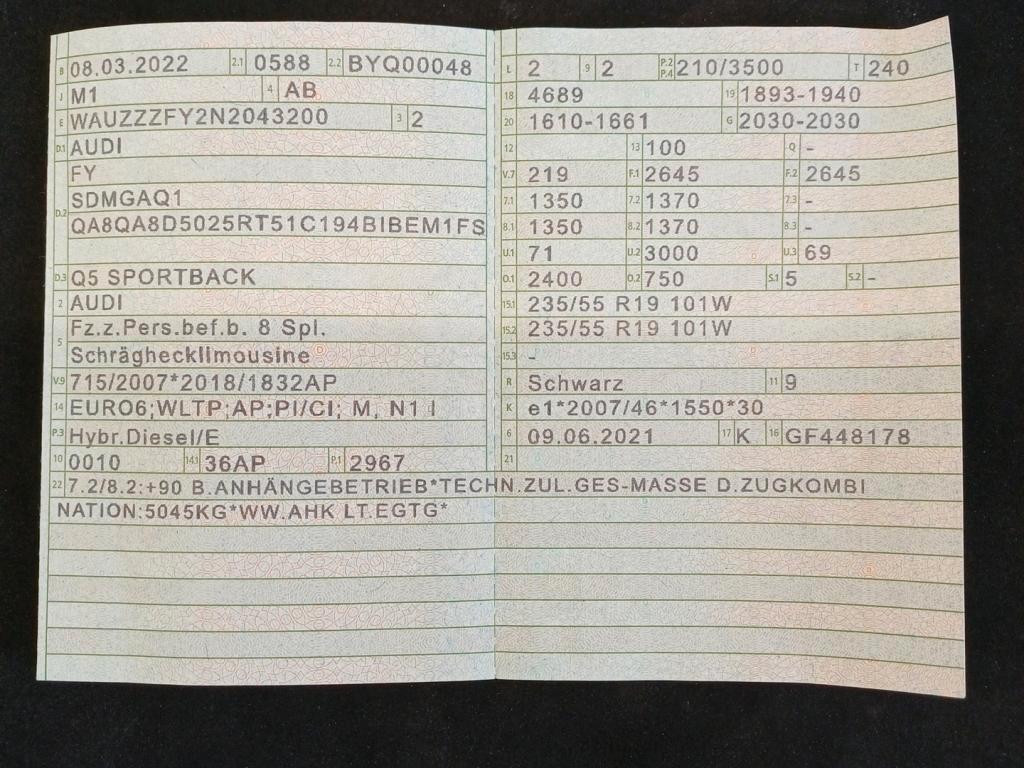 B 08.03.2022 2.1 0588 2.2 BYQ00048
J M1 4 AB
E WAUZZZFY2N2043200 3 2
D.1 AUDI
FY
D.2 SDMGAQ1
QA8QA8D5025RT51C194BIBEM1FS
D.3 Q5 SPORTBACK
2 AUDI
5 Fz.z.Pers.bef.b. 8 Spl.
Schräghecklimousine
V.9 715/2007*2018/1832AP
14 EURO6;WLTP;AP;PI/CI; M, N1 I
P.3 Hybr.Diesel/E
10 0010 14.1 36AP P.1 2967
L 2 9 2 P.2 P.4 210/3500 T 240
18 4689 19 1893-1940
20 1610-1661 G 2030-2030
12 13 100 Q -
V.7 219 F.1 2645 F.2 2645
7.1 1350 7.2 1370 7.3 -
8.1 1350 8.2 1370 8.3 -
U.1 71 U.2 3000 U.3 69
O.1 2400 O.2 750 S.1 5 S.2 -
15.1 235/55 R19 101W
15.2 235/55 R19 101W
15.3 -
R Schwarz 11 9
K e1*2007/46*1550*30
6 09.06.2021 17 K 16 GF448178
21
22 7.2/8.2:+90 B.ANHÄNGEBETRIEB*TECHN.ZUL.GES-MASSE D.ZUGKOMBI
NATION:5045KG*WW.AHK LT.EGTG*